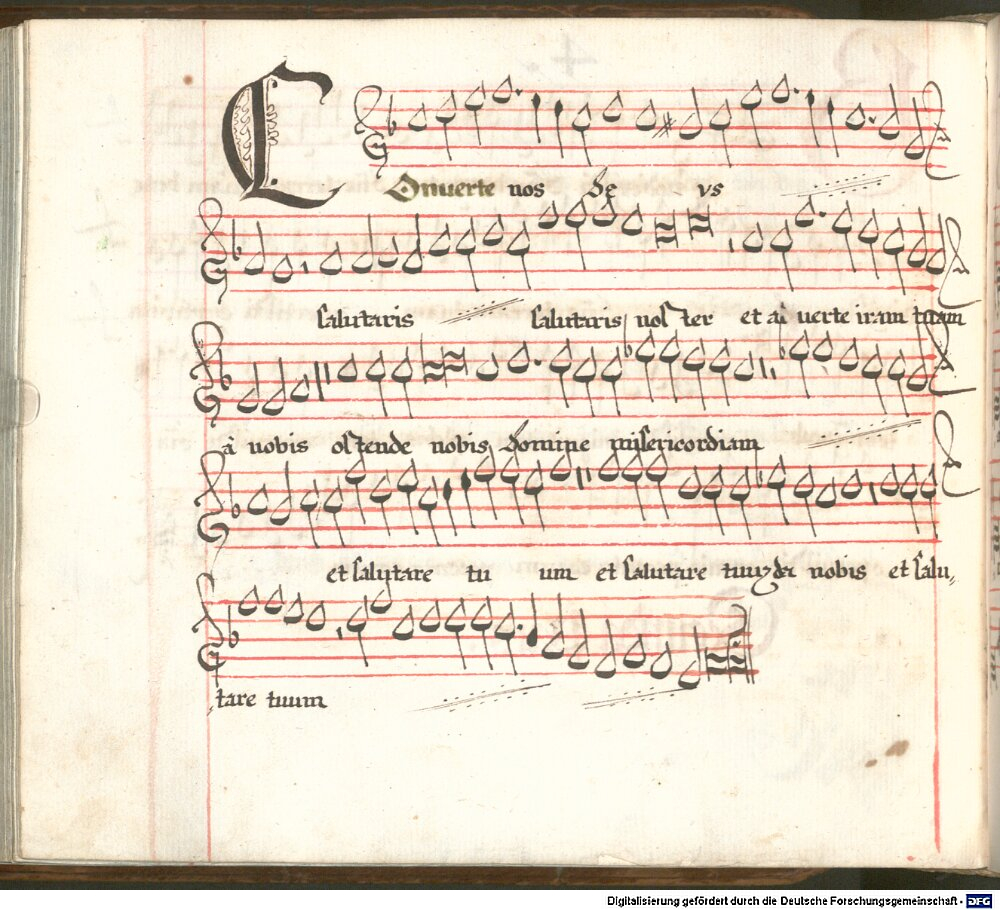 Conuerte nos De vs
salutaris salutaris nos ter et a uerte iram tuam
à uobis ostende nobis domine misericordiam
et salutare tu um et salutare tuum da nobis et salu,,
,,tare tuum
Digitalisierung gefördert durch die Deutsche Forschungsgemeinschaft - DFG